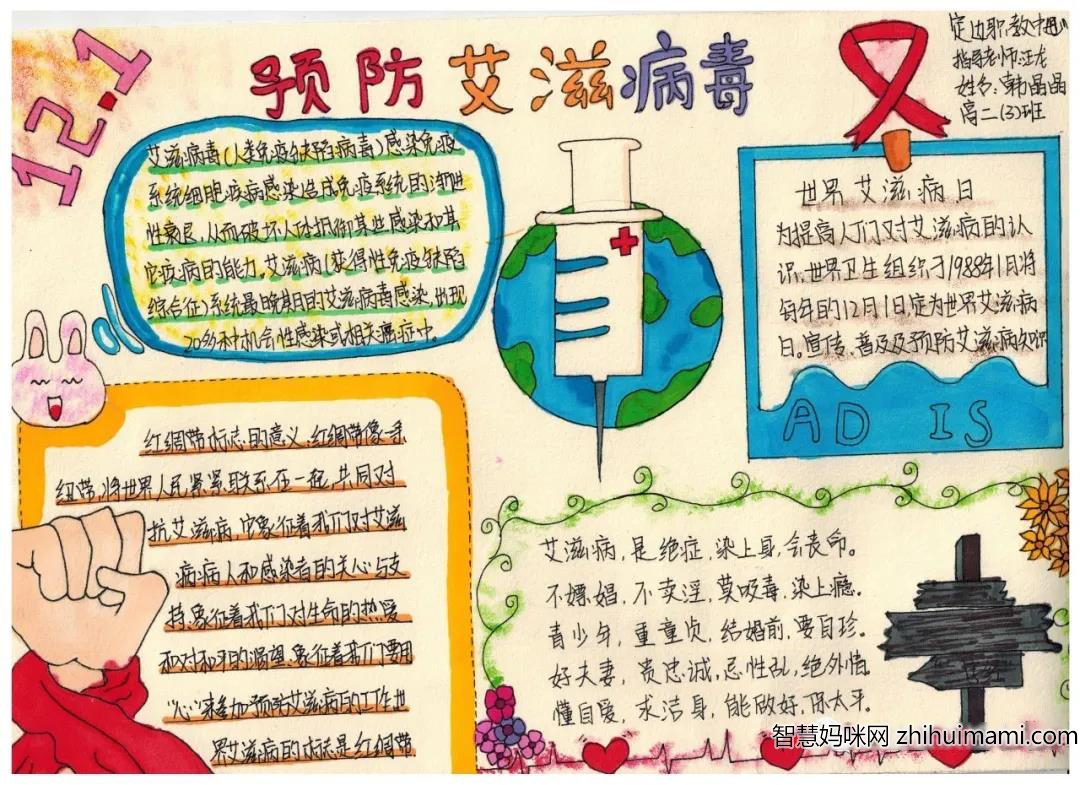 12.1
预防艾滋病毒
定边职教中心
指导老师:汪龙
姓名:韩晶晶
高二(3)班
艾滋病毒(人类免疫缺陷病毒)感染免疫
系统细胞疾病感染造成免疫系统的渐进
性衰退,从而破坏人对抵御某些感染和其
它疾病的能力。艾滋病(获得性免疫缺陷
综合征)系统最晚期的艾滋病毒感染,出现
20多种机会性感染或相关癌症中。
世界艾滋病日
为提高人们对艾滋病的认
识,世界卫生组织于1988年1月将
每年的12月1日定为世界艾滋病
日。宣传、普及及预防艾滋病知识
AD IS
红绸带标志的意义,红绸带像一条
纽带,将世界人民紧紧联系在一起,共同对
抗艾滋病,它象征着我们对艾滋
病病人和感染者的关心与支
持,象征着我们对生命的热爱
和对和平的渴望,象征着我们要用
“心”来参加预防艾滋病的工作世
界艾滋病的标志是红绸带
艾滋病,是绝症,染上身,会丧命。
不嫖娼,不卖淫,莫吸毒,染上瘾。
青少年,重童贞,结婚前,要自珍。
好夫妻,贵忠诚,忌性乱,绝外情。
懂自爱,求洁身,能做好,保太平。
智慧妈咪网 zhihuimami.com